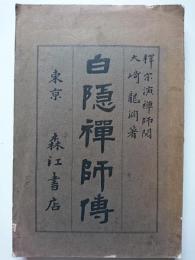 釋宗演禪師閲
大崎龍淵著
白隱禪師傳
東京 森江書店